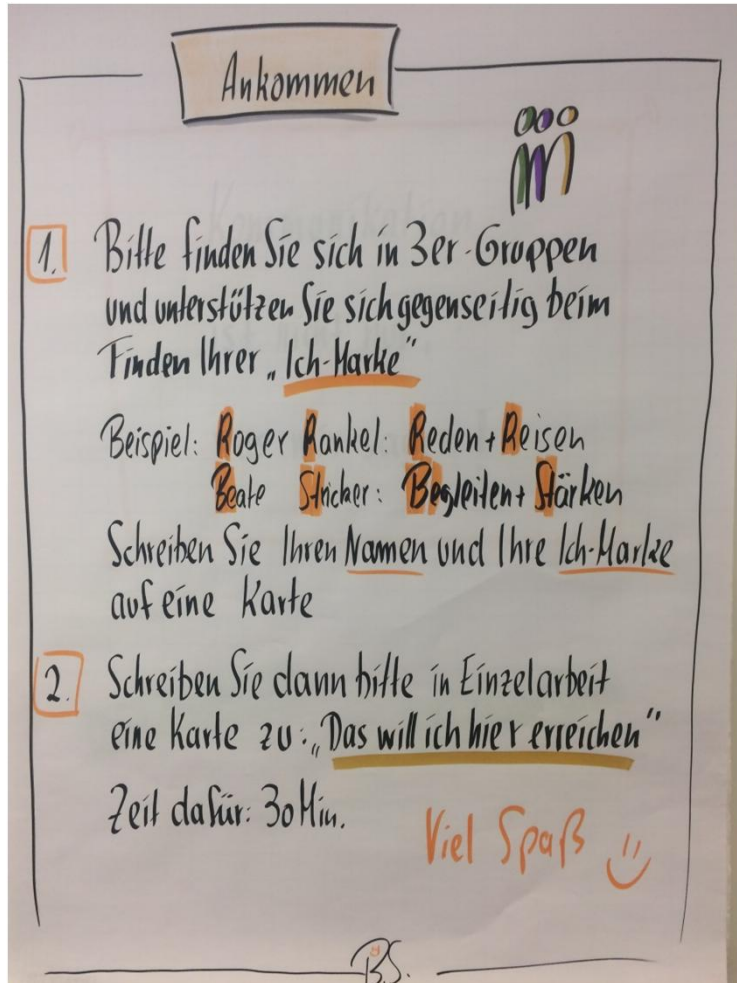 Ankommen
1. Bitte finden Sie sich in 3er-Gruppen
und unterstützen Sie sich gegenseitig beim
Finden Ihrer „Ich-Marke“
Beispiel: Roger Rankel: Reden + Reisen
Beate Stricker: Begleiten + Stärken
Schreiben Sie Ihren Namen und Ihre Ich-Marke
auf eine Karte
2. Schreiben Sie dann bitte in Einzelarbeit
eine Karte zu: „Das will ich hier erreichen“
Zeit dafür: 30 Min.
Viel Spaß
B.S.